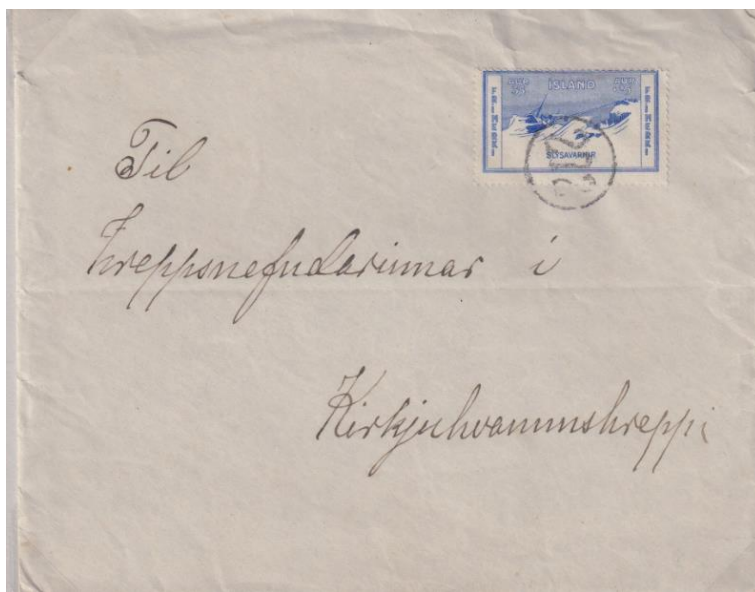 ÍSLAND
FRÍMERKI
FRÍMERKI
SLYSAVARNIR
Til
hreppsnefndarinnar í
Kirkjuhvammshreppi